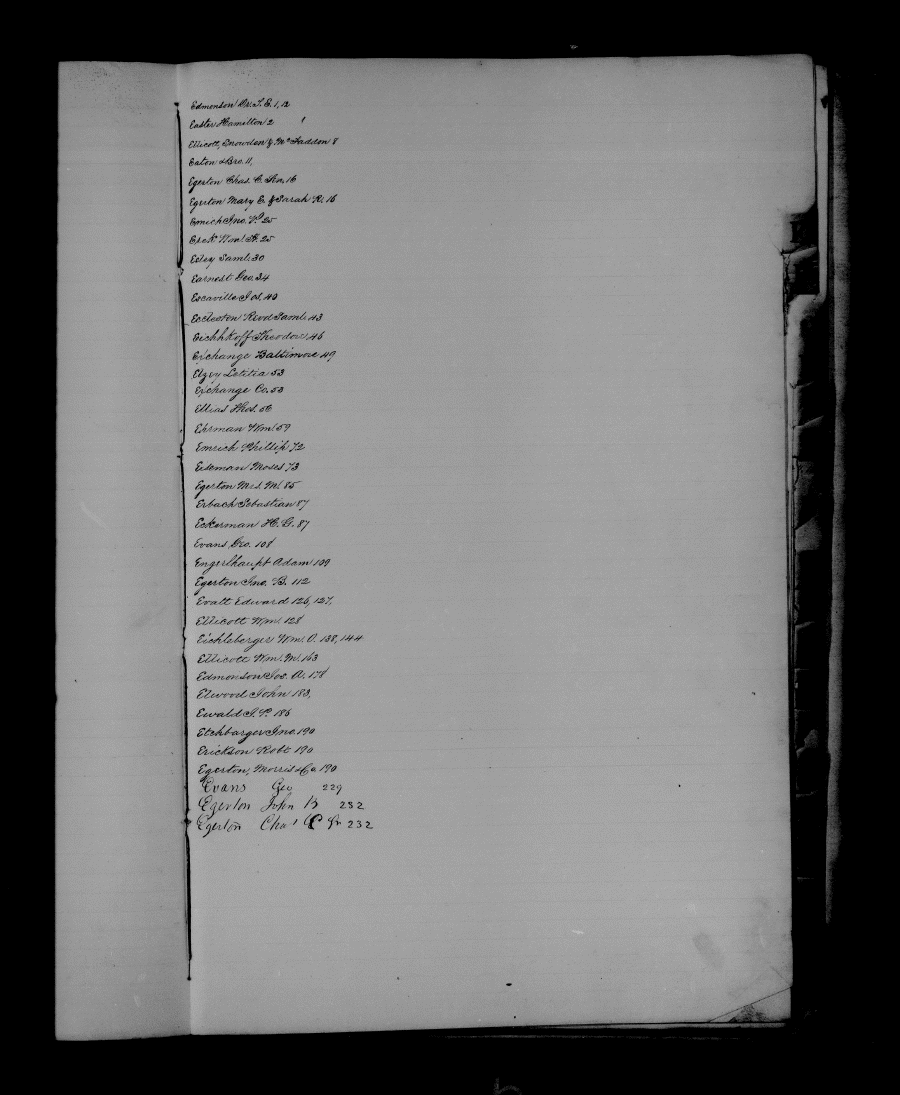 Edmonson Dr. T. E. 1, 12
Easter Hamilton 2
Ellicott, Snowden & McFaddon 8
Eaton & Bro. 11,
Egerton Chas. C. Sen. 16
Egerton Mary E. & Sarah R. 16
Emich Jno. P. 25
Eck Wm. 25
Saml. 30
Earnest Geo. 34
Escaville Jos. 40
Eccleston Revd Saml. 43
Eichhkoff Theodore 46
Exchange Baltimore 49
Elzey Letitia 53
Exchange Co. 53
Ellias Thos. 56
Ehrman Wm. 59
Emrich Phillip 72
Eiseman Moses 73
Egerton Mrs. M. 85
Erbach Sebastian 87
Eckerman H. G. 87
Evans, Geo. 108
Engerlhaupt Adam 109
Egerton Jno. B. 112
Evatt Edward 126, 127,
Ellicott Wm. 128
Eichleberger Wm. O. 138, 144
Ellicott Wm. M. 163
Edmonson Jos. A. 178
Elwood John 183,
Ewald J. P. 186
Etchbarger Jno. 190
Erickson Robt 190
Egerton, Morris & Co 190
Evans Geo 229
Egerton John B 232
Egerton Chas C Jr 232